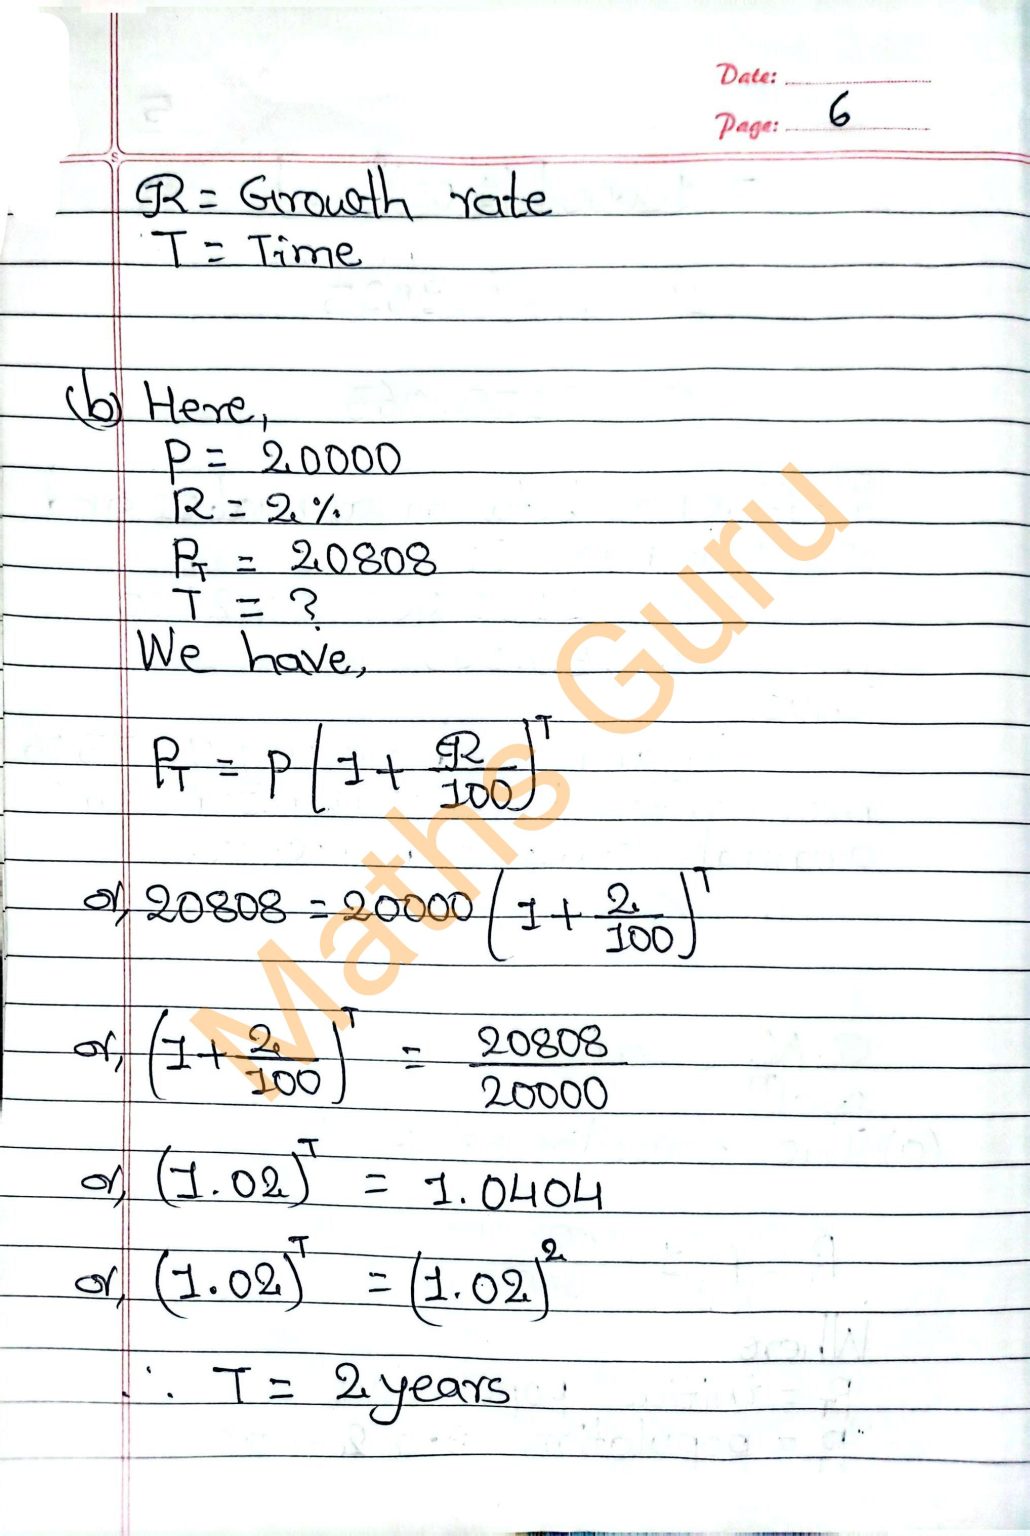 Date:
Page: 6
R = Growth rate
T = Time
(b) Here,
P = 20000
R = 2%
P_T = 20808
T = ?
We have,
P_T = P (1 + R/100)^T
or, 20808 = 20000 (1 + 2/100)^T
or, (1 + 2/100)^T = 20808/20000
or, (1.02)^T = 1.0404
or, (1.02)^T = (1.02)^2
∴ T = 2 years
Maths Guru